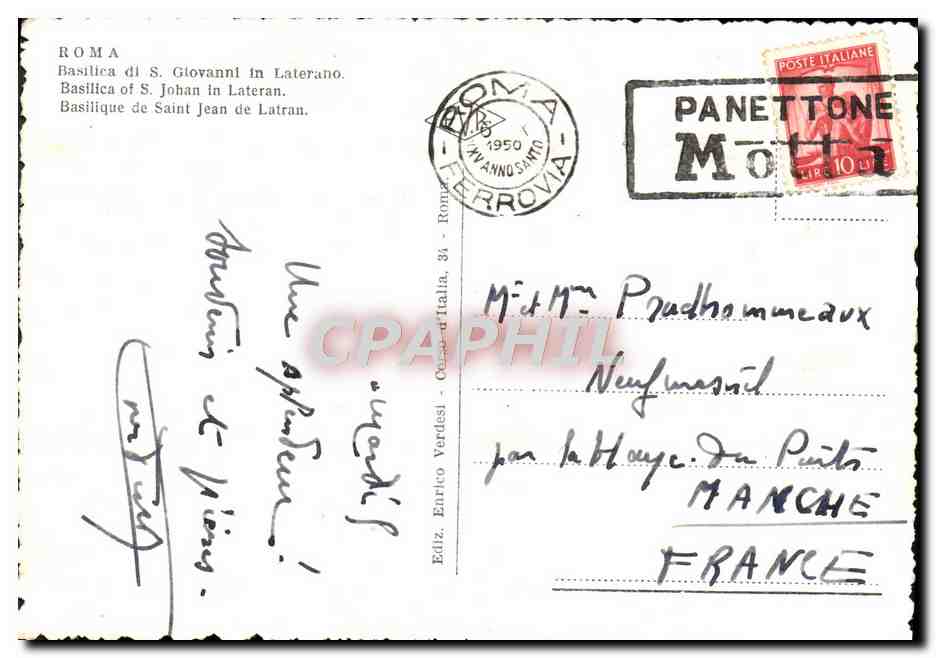 ROMA
Basilica di S. Giovanni in Laterano.
Basilica of S. Johan in Lateran.
Basilique de Saint Jean de Latran.
ROMA
1950
XXV ANNO SANTO
- FERROVIA -
PANETTONE
Motta
POSTE ITALIANE
LIRE 10 LIRE
Ediz. Enrico Verdesi - Corso d'Italia, 34 - Roma
CPAPHIL
mardi
Une splendeur!
souvenir et prières.
Mr et Mme Prudhommeaux
Neufmesnil
par la Haye-du Puits
MANCHE
FRANCE